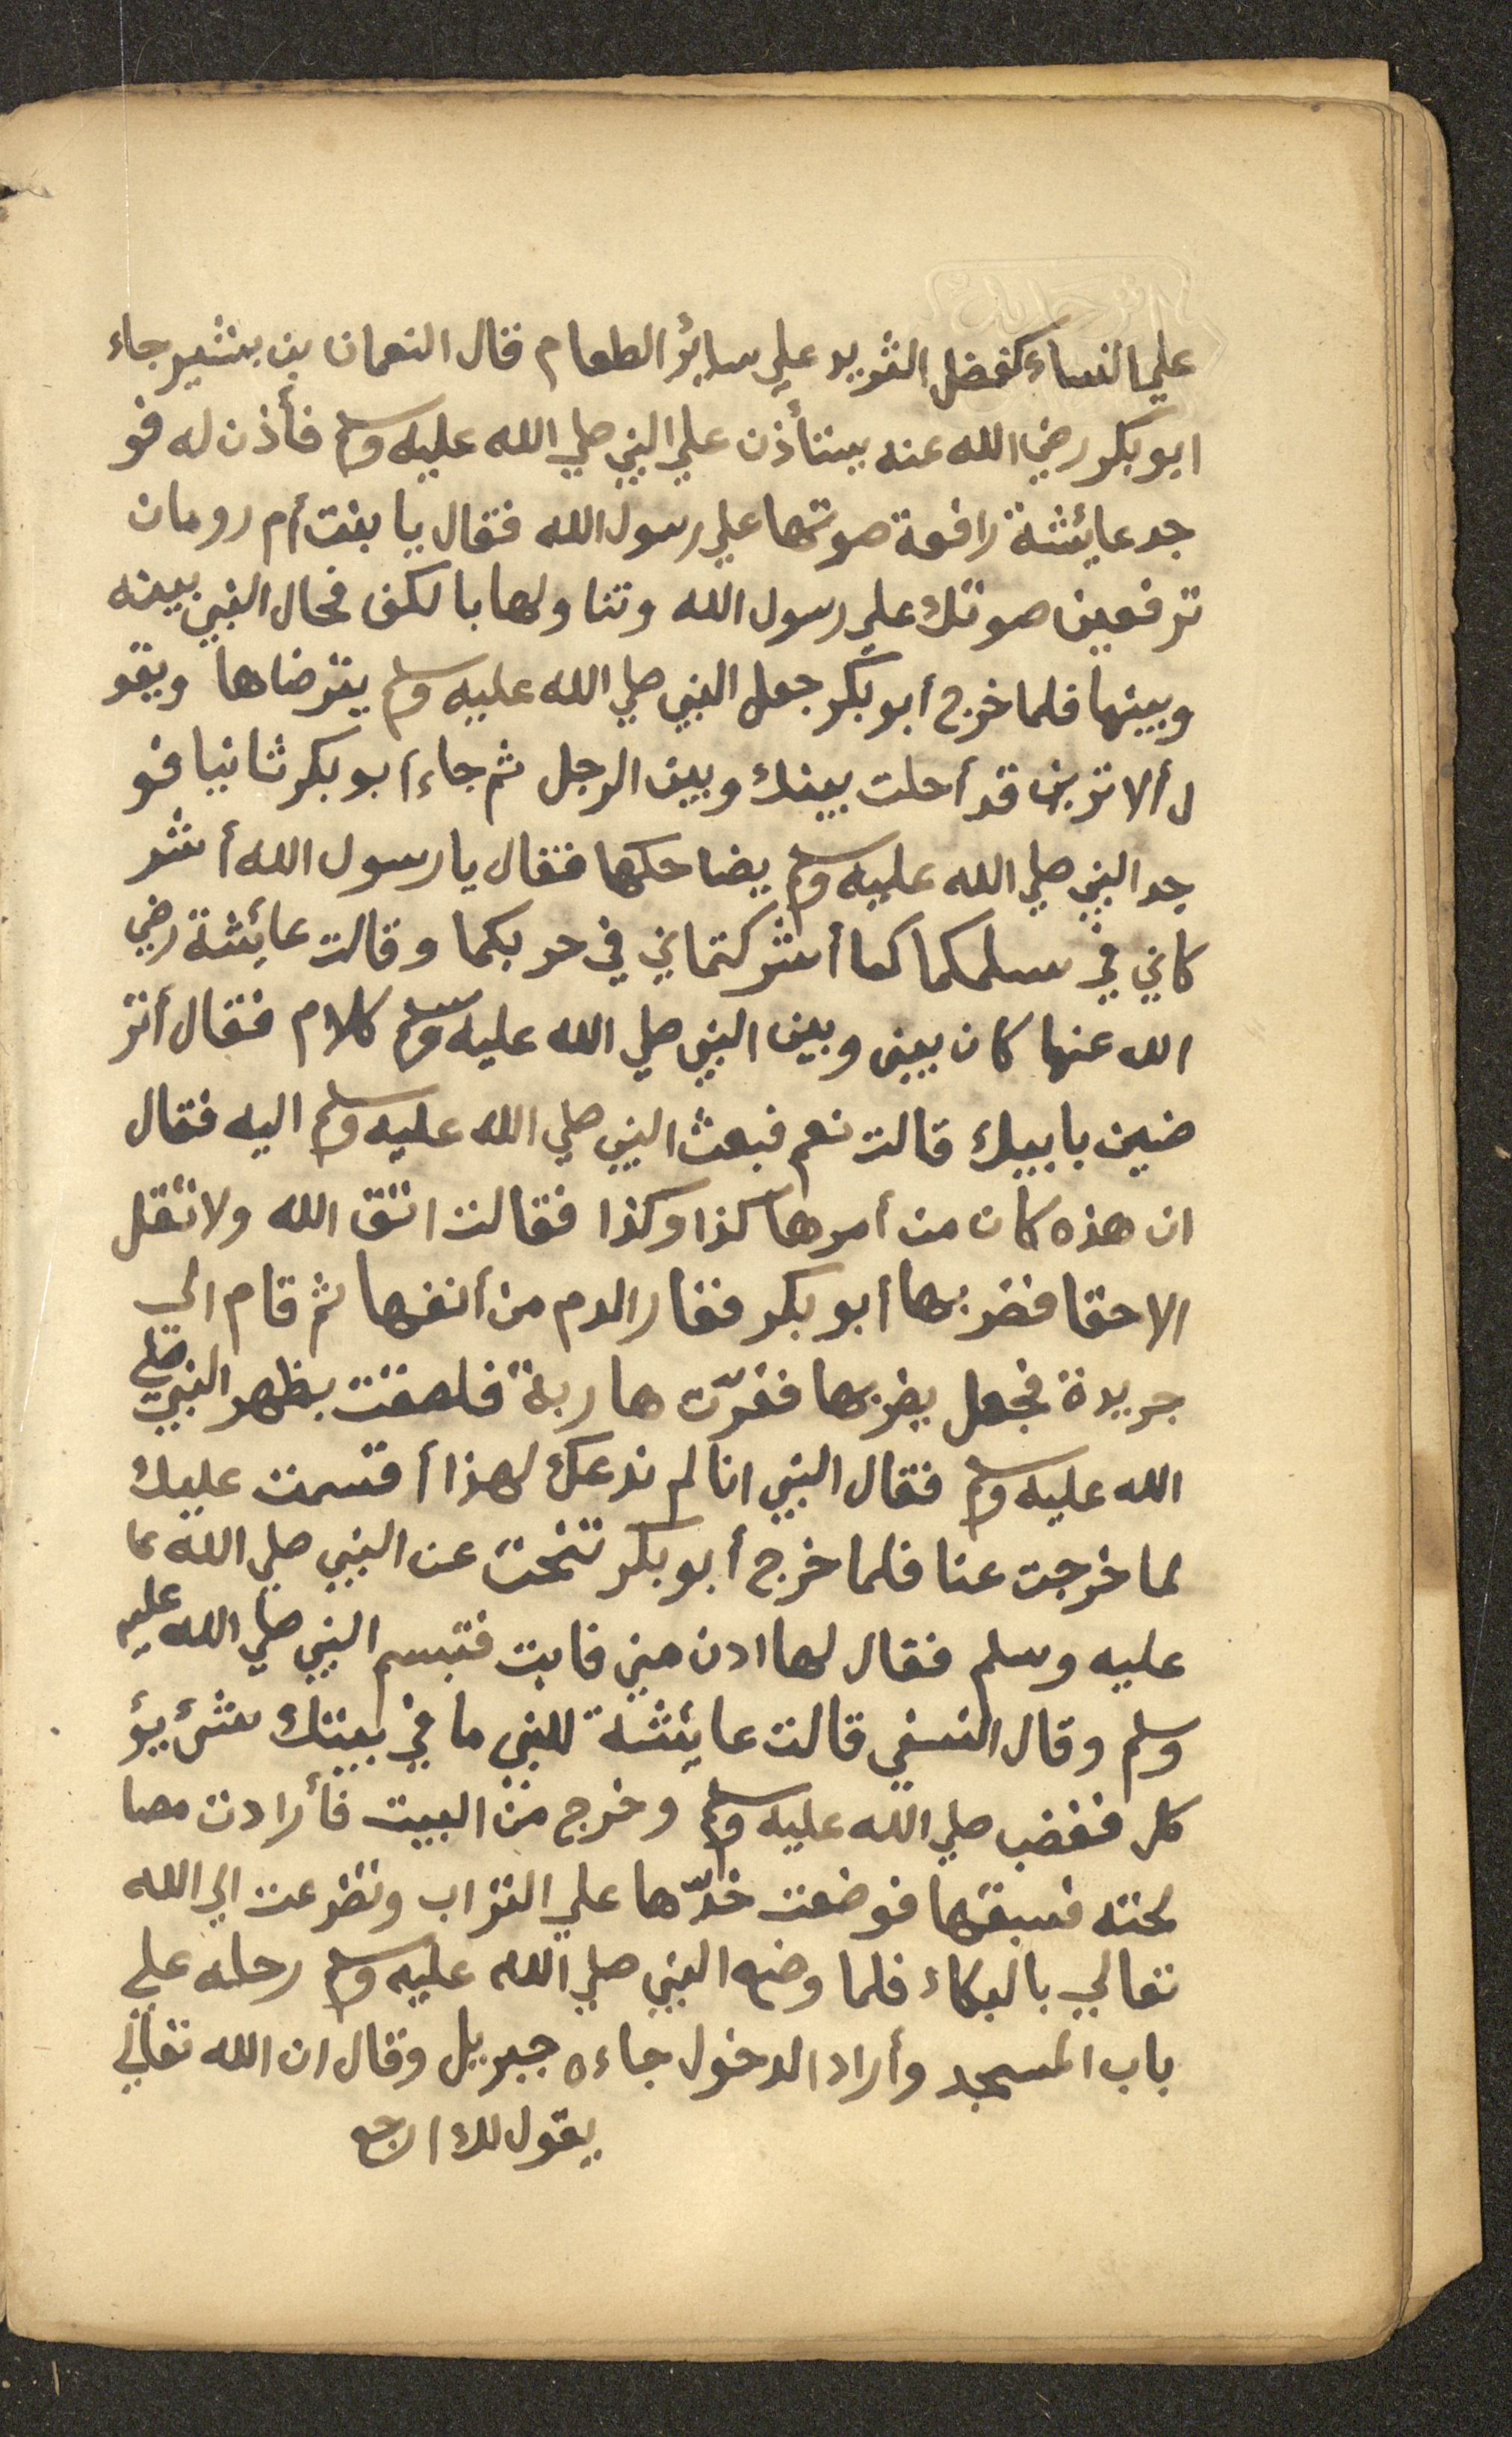 علي النساء كفضل الثريد علي سايرُ الطعام قال النعمان بن بشير جاء
ابو بكر رضي الله عنه يستأذن علي النبي صلي الله عليه وسلم فأذن له فو
جد عائشة رافعة صوتها علي رسول الله فقال يا بنت أم رومان
ترفعين صوتك علي رسول الله وتناولها بالكف فحال النبي بينه
وبينها فلما خرج أبو بكر جعل النبي صلي الله عليه وسلم يترضاها ويقو
ل ألا ترين قد أحلت بينك وبين الرجل ثم جاء أبو بكر ثانيا فو
جد النبي صلي الله عليه وسلم يضاحكها فقال يا رسول الله أشر
كاني في سلمكما كما أشركتماني في حربكما وقالت عائشة رضي
الله عنها كان بيني وبين النبي صلي الله عليه وسلم كلام فقال أتر
ضين بابيك قالت نعم فبعث النبي صلي الله عليه وسلم اليه فقال
ان هذه كان من أمرها كذا وكذا فقالت اتق الله ولا تقل
الا حقا فضربها أبو بكر ففار الدم من أنفها ثم قام الي
جريدة فجعل يضربها ففرّت هاربة فلصقت بظهر النبي صلي
الله عليه وسلم فقال النبي انا لم ندعك لهذا أقسمت عليك
لما خرجت عنا فلما خرج أبو بكر تنحت عن النبي صلي الله عا
عليه وسلم فقال لها ادن مني فابت فتبسم النبي صلي الله عليه
وسلم وقال النسفي قالت عائشة للنبي ما في بيتك شئ يؤ
كل فغضب صلي الله عليه وسلم وخرج من البيت فأرادت مصا
لحته فسبقها فوضعت خدّها علي التراب وتضرعت الي الله
تعالي بالبكاء فلما وضع النبي صلي الله عليه وسلم رحله علي
باب المسجد وأراد الدخول جاءه جبريل وقال ان الله تعالي
يقول لك ارجع